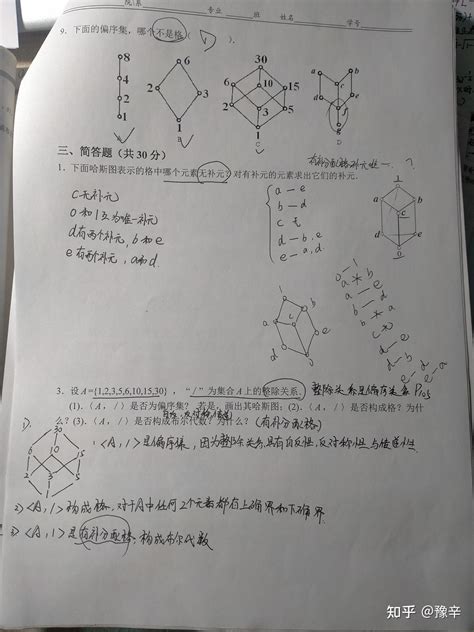 院/系 专业 班 姓名 学号
9. 下面的偏序集，哪个不是格( D ).
8
4
2
1
A
6
2 3
1
B
30
6 10 15
2 3 5
1
C
a b
c
d e
f
g
D
三、简答题（共 30 分）
有补分配格补元唯一 ?
1. 下面哈斯图表示的格中哪个元素无补元? 对有补元的元素求出它们的补元.
c无补元
0和1互为唯一补元
d有两个补元, b和e
e有两个补元, a和d
a — e
b — d
c 无
d — b, e
e — a, d
1
a b
c
d e
0
0—1
a
b — d
c 无
d — b
d — e
e — d
e — a
3. 设A={1,2,3,5,6,10,15,30}，“/”为集合A上的整除关系.
整除关系是偏序关系
(1).〈A，/〉是否为偏序集？ 若是，画出其哈斯图；(2).〈A，/〉是否构成格？为什
么？(3).〈A，/〉是否构成布尔代数？为什么？ (有补分配格)
1).
30
6 10 15
2 3 5
1
<A, /> 是偏序集, 因为整除关系具有自反性, 反对称性与传递性.
2) <A, /> 构成格, 对于A中任何2个元素都有上确界和下确界.
3) <A, /> 是有补分配格, 构成布尔代数
知乎 @豫辛